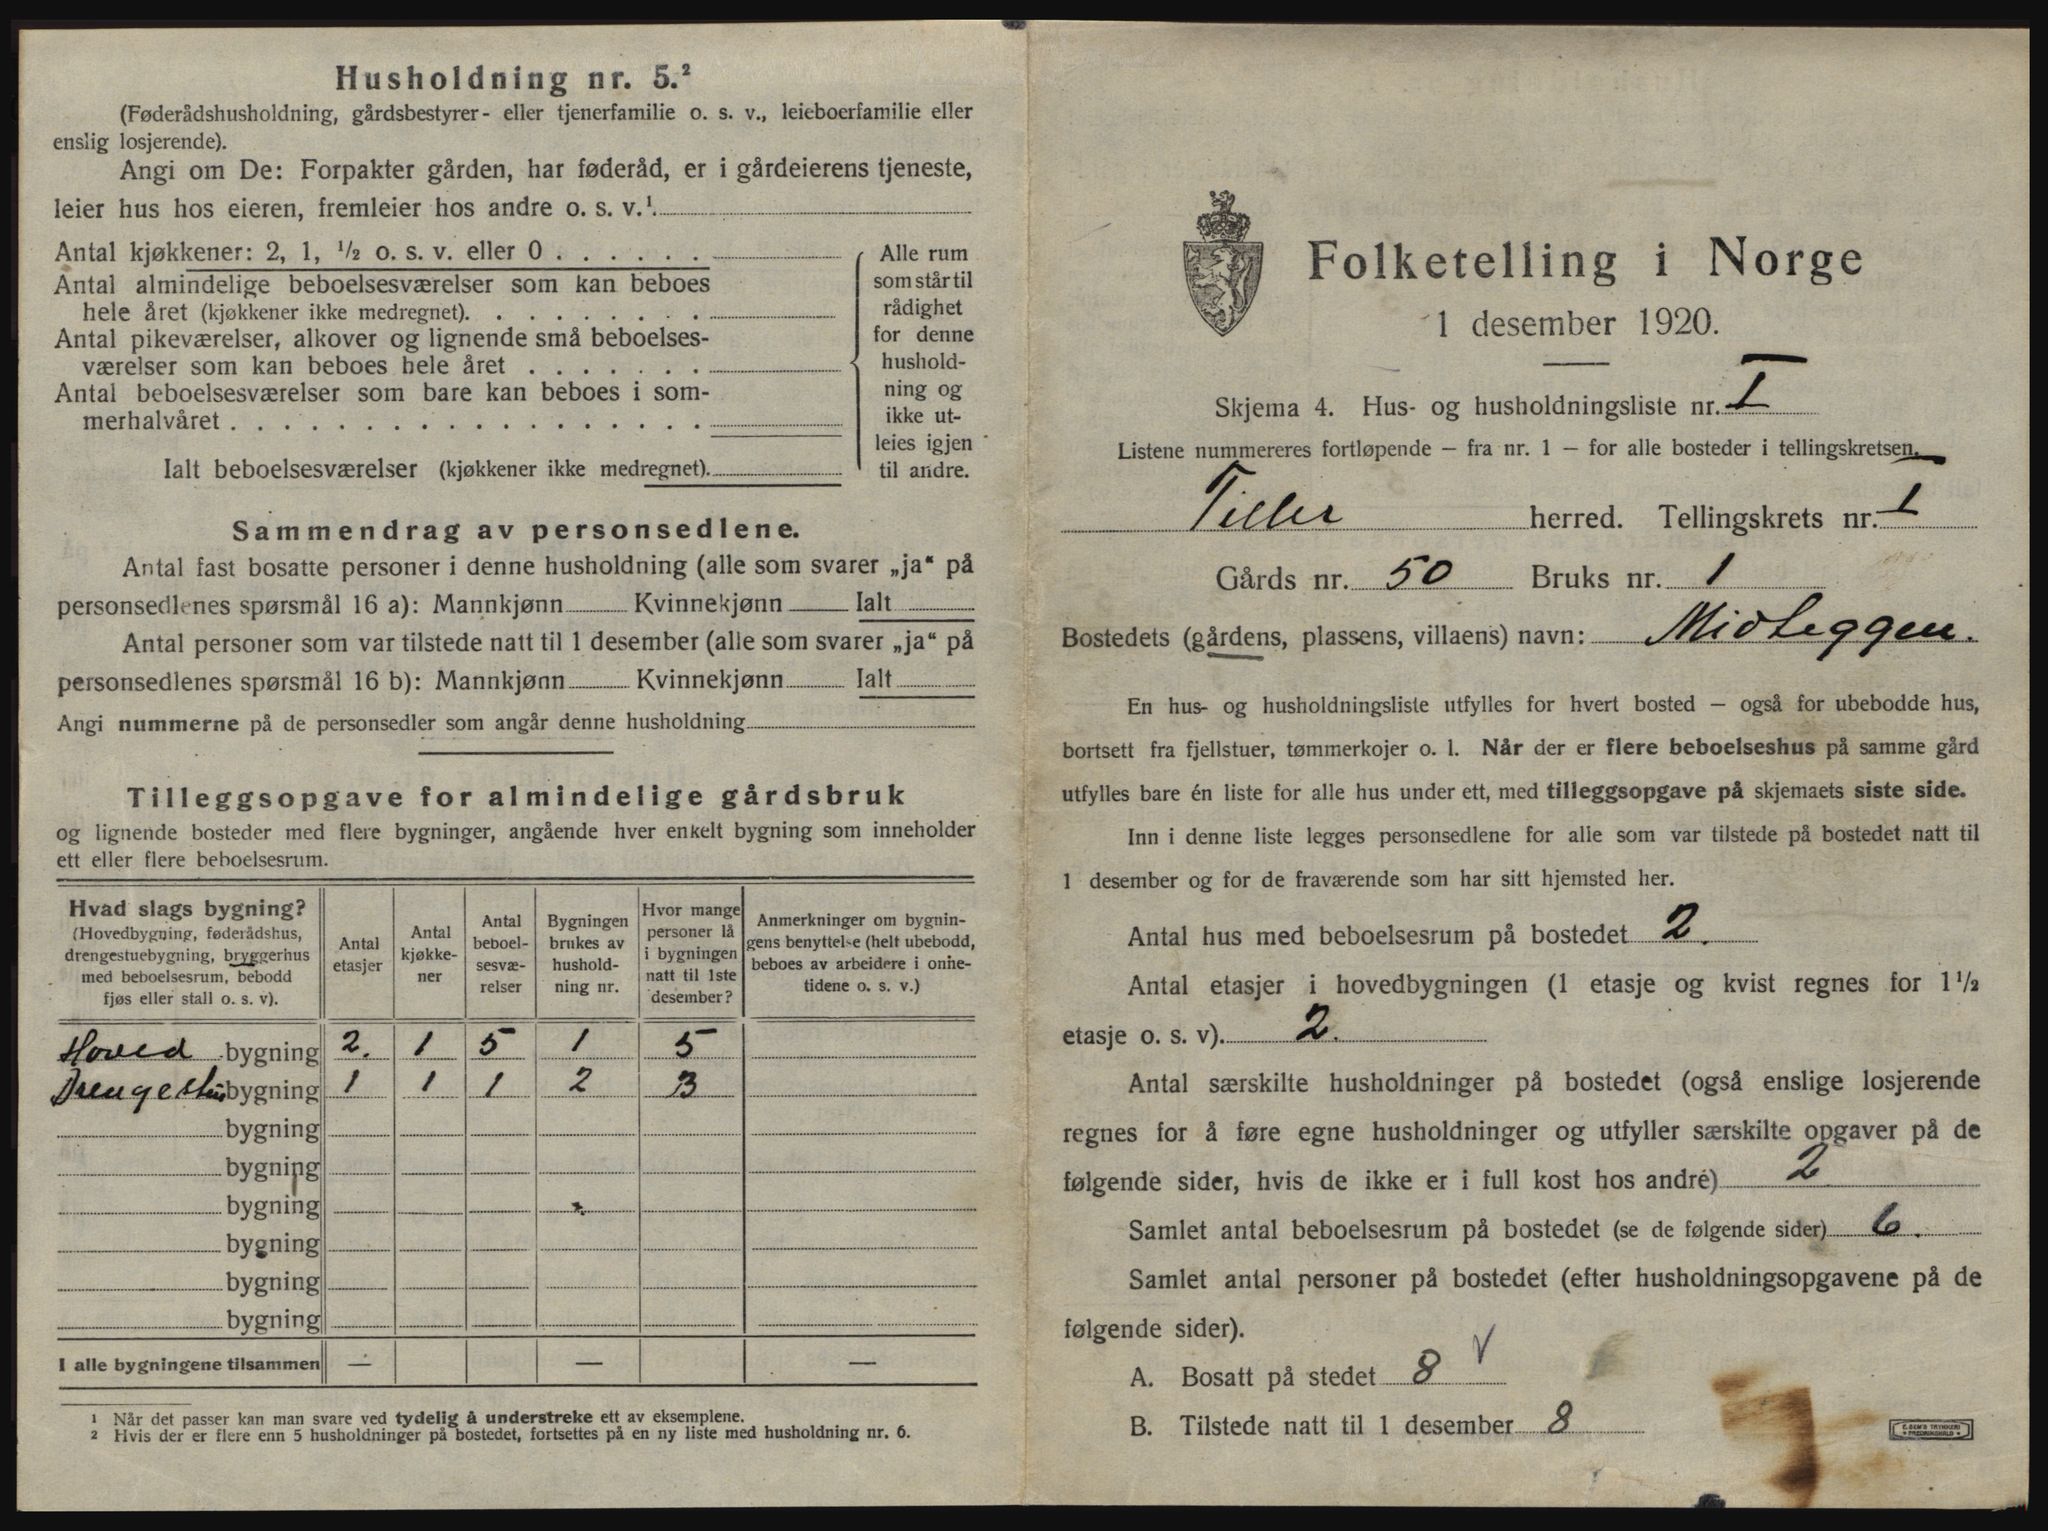 Husholdning nr. 5.²
(Føderådshusholdning, gårdsbestyrer- eller tjenerfamilie o. s. v., leieboerfamilie eller
enslig losjerende).
Angi om De: Forpakter gården, har føderåd, er i gårdeierens tjeneste,
leier hus hos eieren, fremleier hos andre o. s. v.¹
Antal kjøkkener: 2, 1, ½ o. s. v. eller 0 . . . . . .
Antal almindelige beboelsesværelser som kan beboes
hele året (kjøkkener ikke medregnet). . . . . . . .
Antal pikeværelser, alkover og lignende små beboelses-
værelser som kan beboes hele året . . . . . . .
Antal beboelsesværelser som bare kan beboes i som-
merhalvåret . . . . . . . . . . . . . . . . . .
Ialt beboelsesværelser (kjøkkener ikke medregnet).
Alle rum
som står til
rådighet
for denne
hushold-
ning og
ikke ut-
leies igjen
til andre.
Sammendrag av personsedlene.
Antal fast bosatte personer i denne husholdning (alle som svarer „ja“ på
personsedlenes spørsmål 16 a): Mannkjønn Kvinnekjønn Ialt
Antal personer som var tilstede natt til 1 desember (alle som svarer „ja“ på
personsedlenes spørsmål 16 b): Mannkjønn Kvinnekjønn Ialt
Angi nummerne på de personsedler som angår denne husholdning
Tilleggsopgave for almindelige gårdsbruk
og lignende bosteder med flere bygninger, angående hver enkelt bygning som inneholder
ett eller flere beboelsesrum.
Hvad slags bygning?
(Hovedbygning, føderådshus,
drengestuebygning, bryggerhus
med beboelsesrum, bebodd
fjøs eller stall o. s. v).
Antal
etasjer
Antal
kjøkke-
ner
Antal
beboel-
sesvæ-
relser
Bygningen
brukes av
hushold-
ning nr.
Hvor mange
personer lå
i bygningen
natt til 1ste
desember?
Anmerkninger om bygnin-
gens benyttelse (helt ubebodd,
beboes av arbeidere i onne-
tidene o. s. v.)
Hoved bygning 2. 1 5 1 5
Drengestu bygning 1 1 1 2 3
bygning
bygning
bygning
bygning
bygning
bygning
I alle bygningene tilsammen — — —
¹ Når det passer kan man svare ved tydelig å understreke ett av eksemplene.
² Hvis der er flere enn 5 husholdninger på bostedet, fortsettes på en ny liste med husholdning nr. 6.
Folketelling i Norge
1 desember 1920.
Skjema 4. Hus- og husholdningsliste nr. I
Listene nummereres fortløpende – fra nr. 1 – for alle bosteder i tellingskretsen.
Tiller herred. Tellingskrets nr. I
Gårds nr. 50 Bruks nr. 1
Bostedets (gårdens, plassens, villaens) navn: Midteggen.
En hus- og husholdningsliste utfylles for hvert bosted – også for ubebodde hus,
bortsett fra fjellstuer, tømmerkojer o. l. Når der er flere beboelseshus på samme gård
utfylles bare én liste for alle hus under ett, med tilleggsopgave på skjemaets siste side.
Inn i denne liste legges personsedlene for alle som var tilstede på bostedet natt til
1 desember og for de fraværende som har sitt hjemsted her.
Antal hus med beboelsesrum på bostedet 2.
Antal etasjer i hovedbygningen (1 etasje og kvist regnes for 1½
etasje o. s. v). 2.
Antal særskilte husholdninger på bostedet (også enslige losjerende
regnes for å føre egne husholdninger og utfyller særskilte opgaver på de
følgende sider, hvis de ikke er i full kost hos andre) 2
Samlet antal beboelsesrum på bostedet (se de følgende sider) 6.
Samlet antal personer på bostedet (efter husholdningsopgavene på de
følgende sider).
A. Bosatt på stedet 8 V
B. Tilstede natt til 1 desember 8